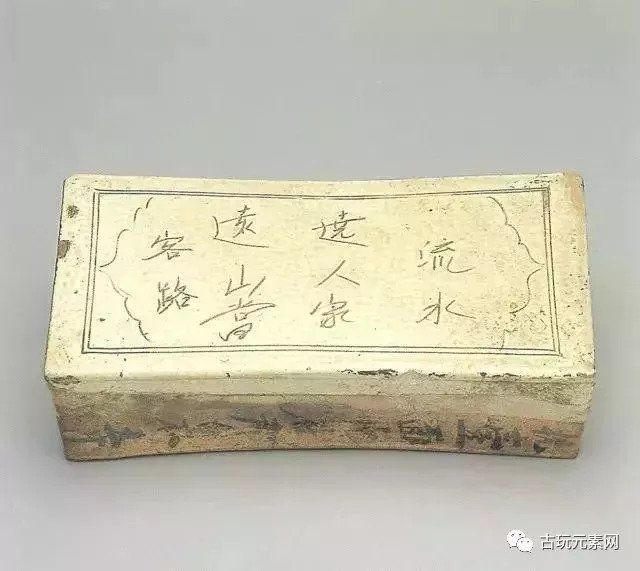 流水
遶人家
遠山當
客路
古玩元素网